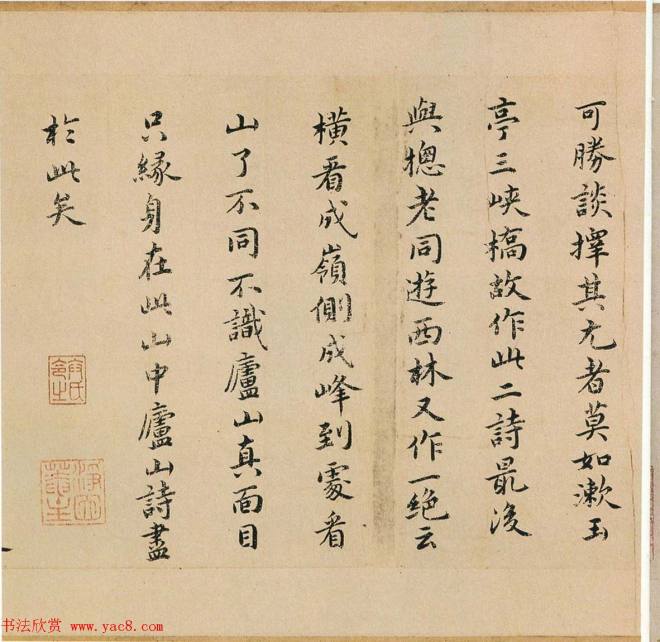 可勝談擇其尤者莫如漱玉
亭三峽橋故作此二詩最後
與揔老同遊西林又作一絕云
橫看成嶺側成峰到處看
山了不同不識廬山真面目
只緣身在此山中廬山詩盡
於此矣
书法欣赏 www.yac8.com